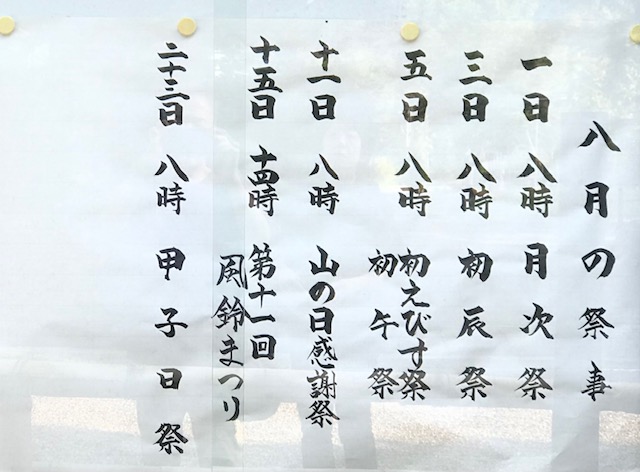 八月の祭事
一日 八時 月次祭
三日 八時 初辰祭
五日 八時 初えびす祭
初午祭
十一日 八時 山の日感謝祭
十五日 十四時 第十一回
風鈴まつり
二十三日 八時 甲子日祭